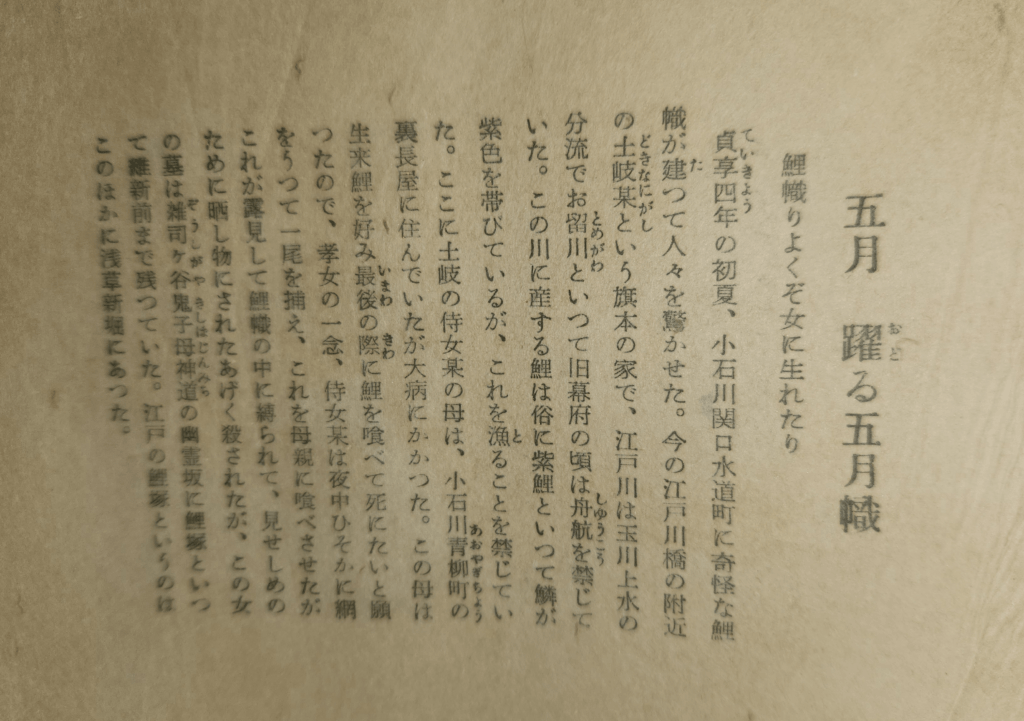 五月　躍る五月幟
鯉幟りよくぞ女に生れたり
貞享四年の初夏、小石川関口水道町に奇怪な鯉
幟が建つて人々を驚かせた。今の江戸川橋の附近
の土岐某という旗本の家で、江戸川は玉川上水の
分流でお留川といつて旧幕府の頃は舟航を禁じて
いた。この川に産する鯉は俗に紫鯉といつて鱗が
紫色を帯びているが、これを漁ることを禁じてい
た。ここに土岐の侍女某の母は、小石川青柳町の
裏長屋に住んでいたが大病にかかつた。この母は
生来鯉を好み最後の際に鯉を喰べて死にたいと願
つたので、孝女の一念、侍女某は夜中ひそかに網
をうつて一尾を捕え、これを母親に喰べさせたが
これが露見して鯉幟の中に縛られて、見せしめの
ために晒し物にされたあげく殺されたが、この女
の墓は雑司ヶ谷鬼子母神道の幽霊坂に鯉塚といつ
て維新前まで残つていた。江戸の鯉塚というのは
このほかに浅草新堀にあつた。